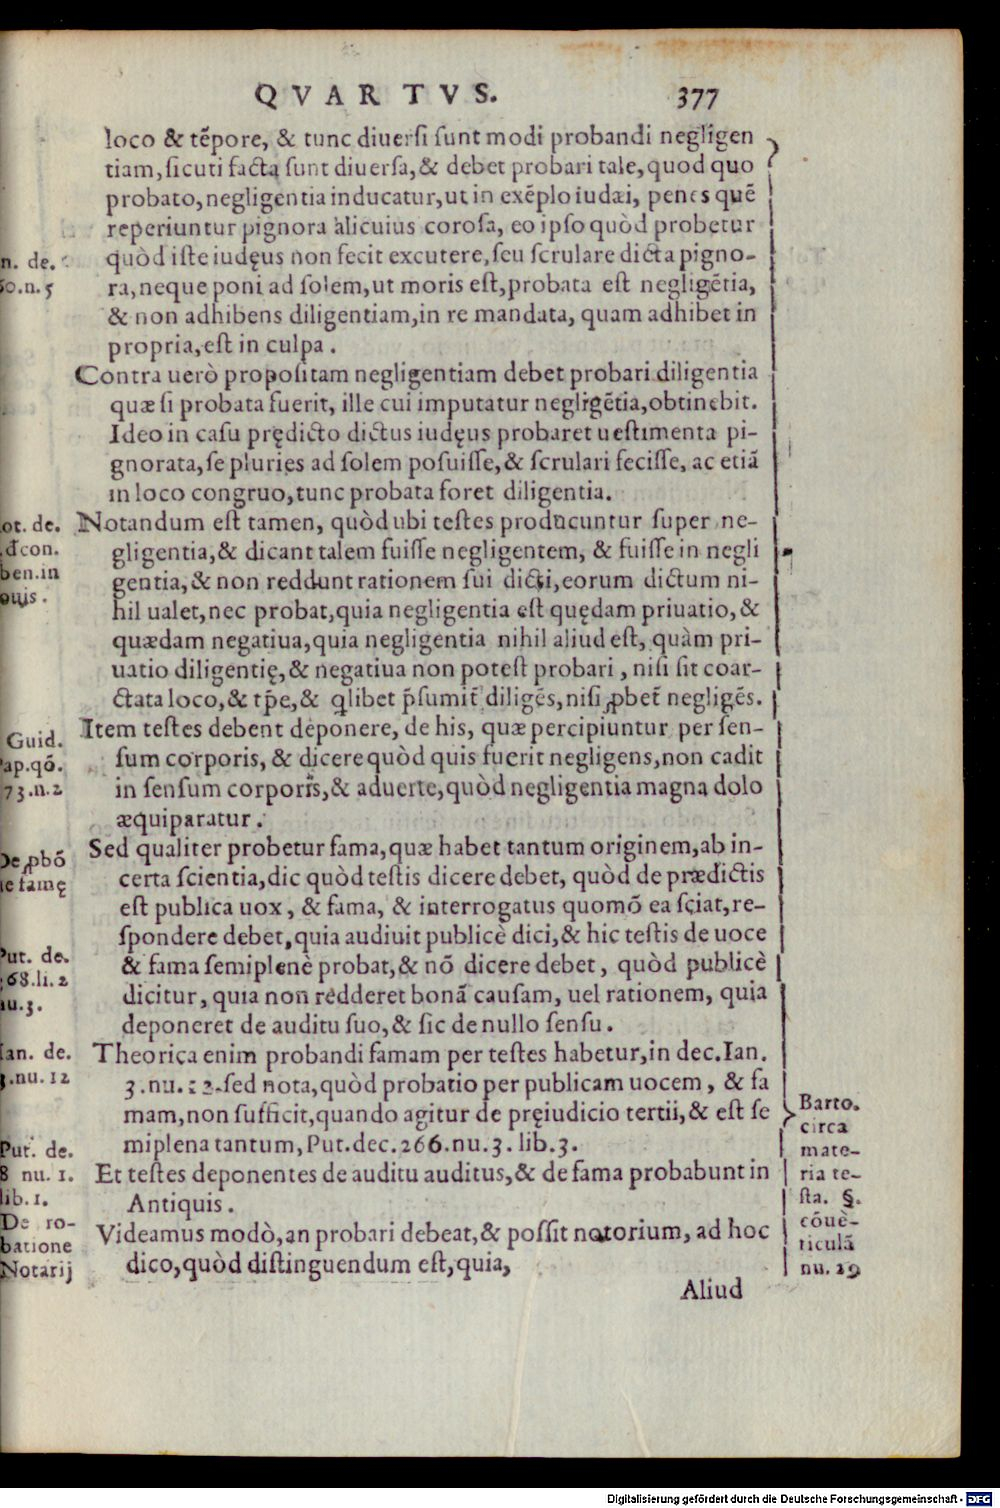 QVARTVS. 377
loco & tẽpore, & tunc diuersi sunt modi probandi negligen
tiam, sicuti facta sunt diuersa, & debet probari tale, quod quo
probato, negligentia inducatur, ut in exẽplo iudæi, penes quẽ
reperiuntur pignora alicuius corosa, eo ipso quòd probetur
quòd iste iudęus non fecit excutere, seu scrulare dicta pigno-
ra, neque poni ad solem, ut moris est, probata est negligẽtia,
& non adhibens diligentiam, in re mandata, quam adhibet in
propria, est in culpa.
Contra uerò propositam negligentiam debet probari diligentia
quæ si probata fuerit, ille cui imputatur negligẽtia, obtinebit.
Ideo in casu prędicto dictus iudęus probaret uestimenta pi-
gnorata, se pluries ad solem posuisse, & scrulari fecisse, ac etiã
in loco congruo, tunc probata foret diligentia.
Notandum est tamen, quòd ubi testes producuntur super ne-
gligentia, & dicant talem fuisse negligentem, & fuisse in negli
gentia, & non reddunt rationem sui dicti, eorum dictum ni-
hil ualet, nec probat, quia negligentia est quędam priuatio, &
quædam negatiua, quia negligentia nihil aliud est, quàm pri-
uatio diligentię, & negatiua non potest probari, nisi sit coar-
ctata loco, & tp̃e, & q̃libet p̃sumit̃ diligẽs, nisi ꝓbet̃ negligẽs.
Item testes debent deponere, de his, quæ percipiuntur per sen-
sum corporis, & dicere quòd quis fuerit negligens, non cadit
in sensum corporis, & aduerte, quòd negligentia magna dolo
æquiparatur.
Sed qualiter probetur fama, quæ habet tantum originem, ab in-
certa scientia, dic quòd testis dicere debet, quòd de prædictis
est publica uox, & fama, & interrogatus quomõ ea sciat, re-
spondere debet, quia audiuit publicè dici, & hic testis de uoce
& fama semiplenè probat, & nõ dicere debet, quòd publicè
dicitur, quia non redderet bonã causam, uel rationem, quia
deponeret de auditu suo, & sic de nullo sensu.
Theorica enim probandi famam per testes habetur, in dec. Ian.
3. nu. 12. sed nota, quòd probatio per publicam uocem, & fa
mam, non sufficit, quando agitur de pręiudicio tertii, & est se
miplena tantum, Put. dec. 266. nu. 3. lib. 3.
Et testes deponentes de auditu auditus, & de fama probabunt in
Antiquis.
Videamus modò, an probari debeat, & possit notorium, ad hoc
dico, quòd distinguendum est, quia,
Aliud
n. de.
60. n. 5
ot. de.
đcon.
ben. in
ouis.
Guid.
Pap. qõ.
73. n. 2
De ꝓbõ
ne famę
Put. de.
68. li. 2
nu. 3.
Ian. de.
3. nu. 12
Put. de.
8 nu. 1.
lib. 1.
De ro-
batione
Notarij
Barto.
circa
mate-
ria te-
sta. §.
cõuẽ-
ticulã
nu. 29
Digitalisierung gefördert durch die Deutsche Forschungsgemeinschaft - DFG